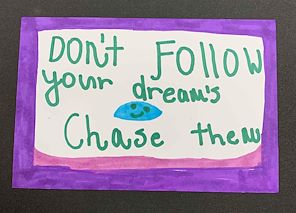 DON't Follow
your dream's
Chase them